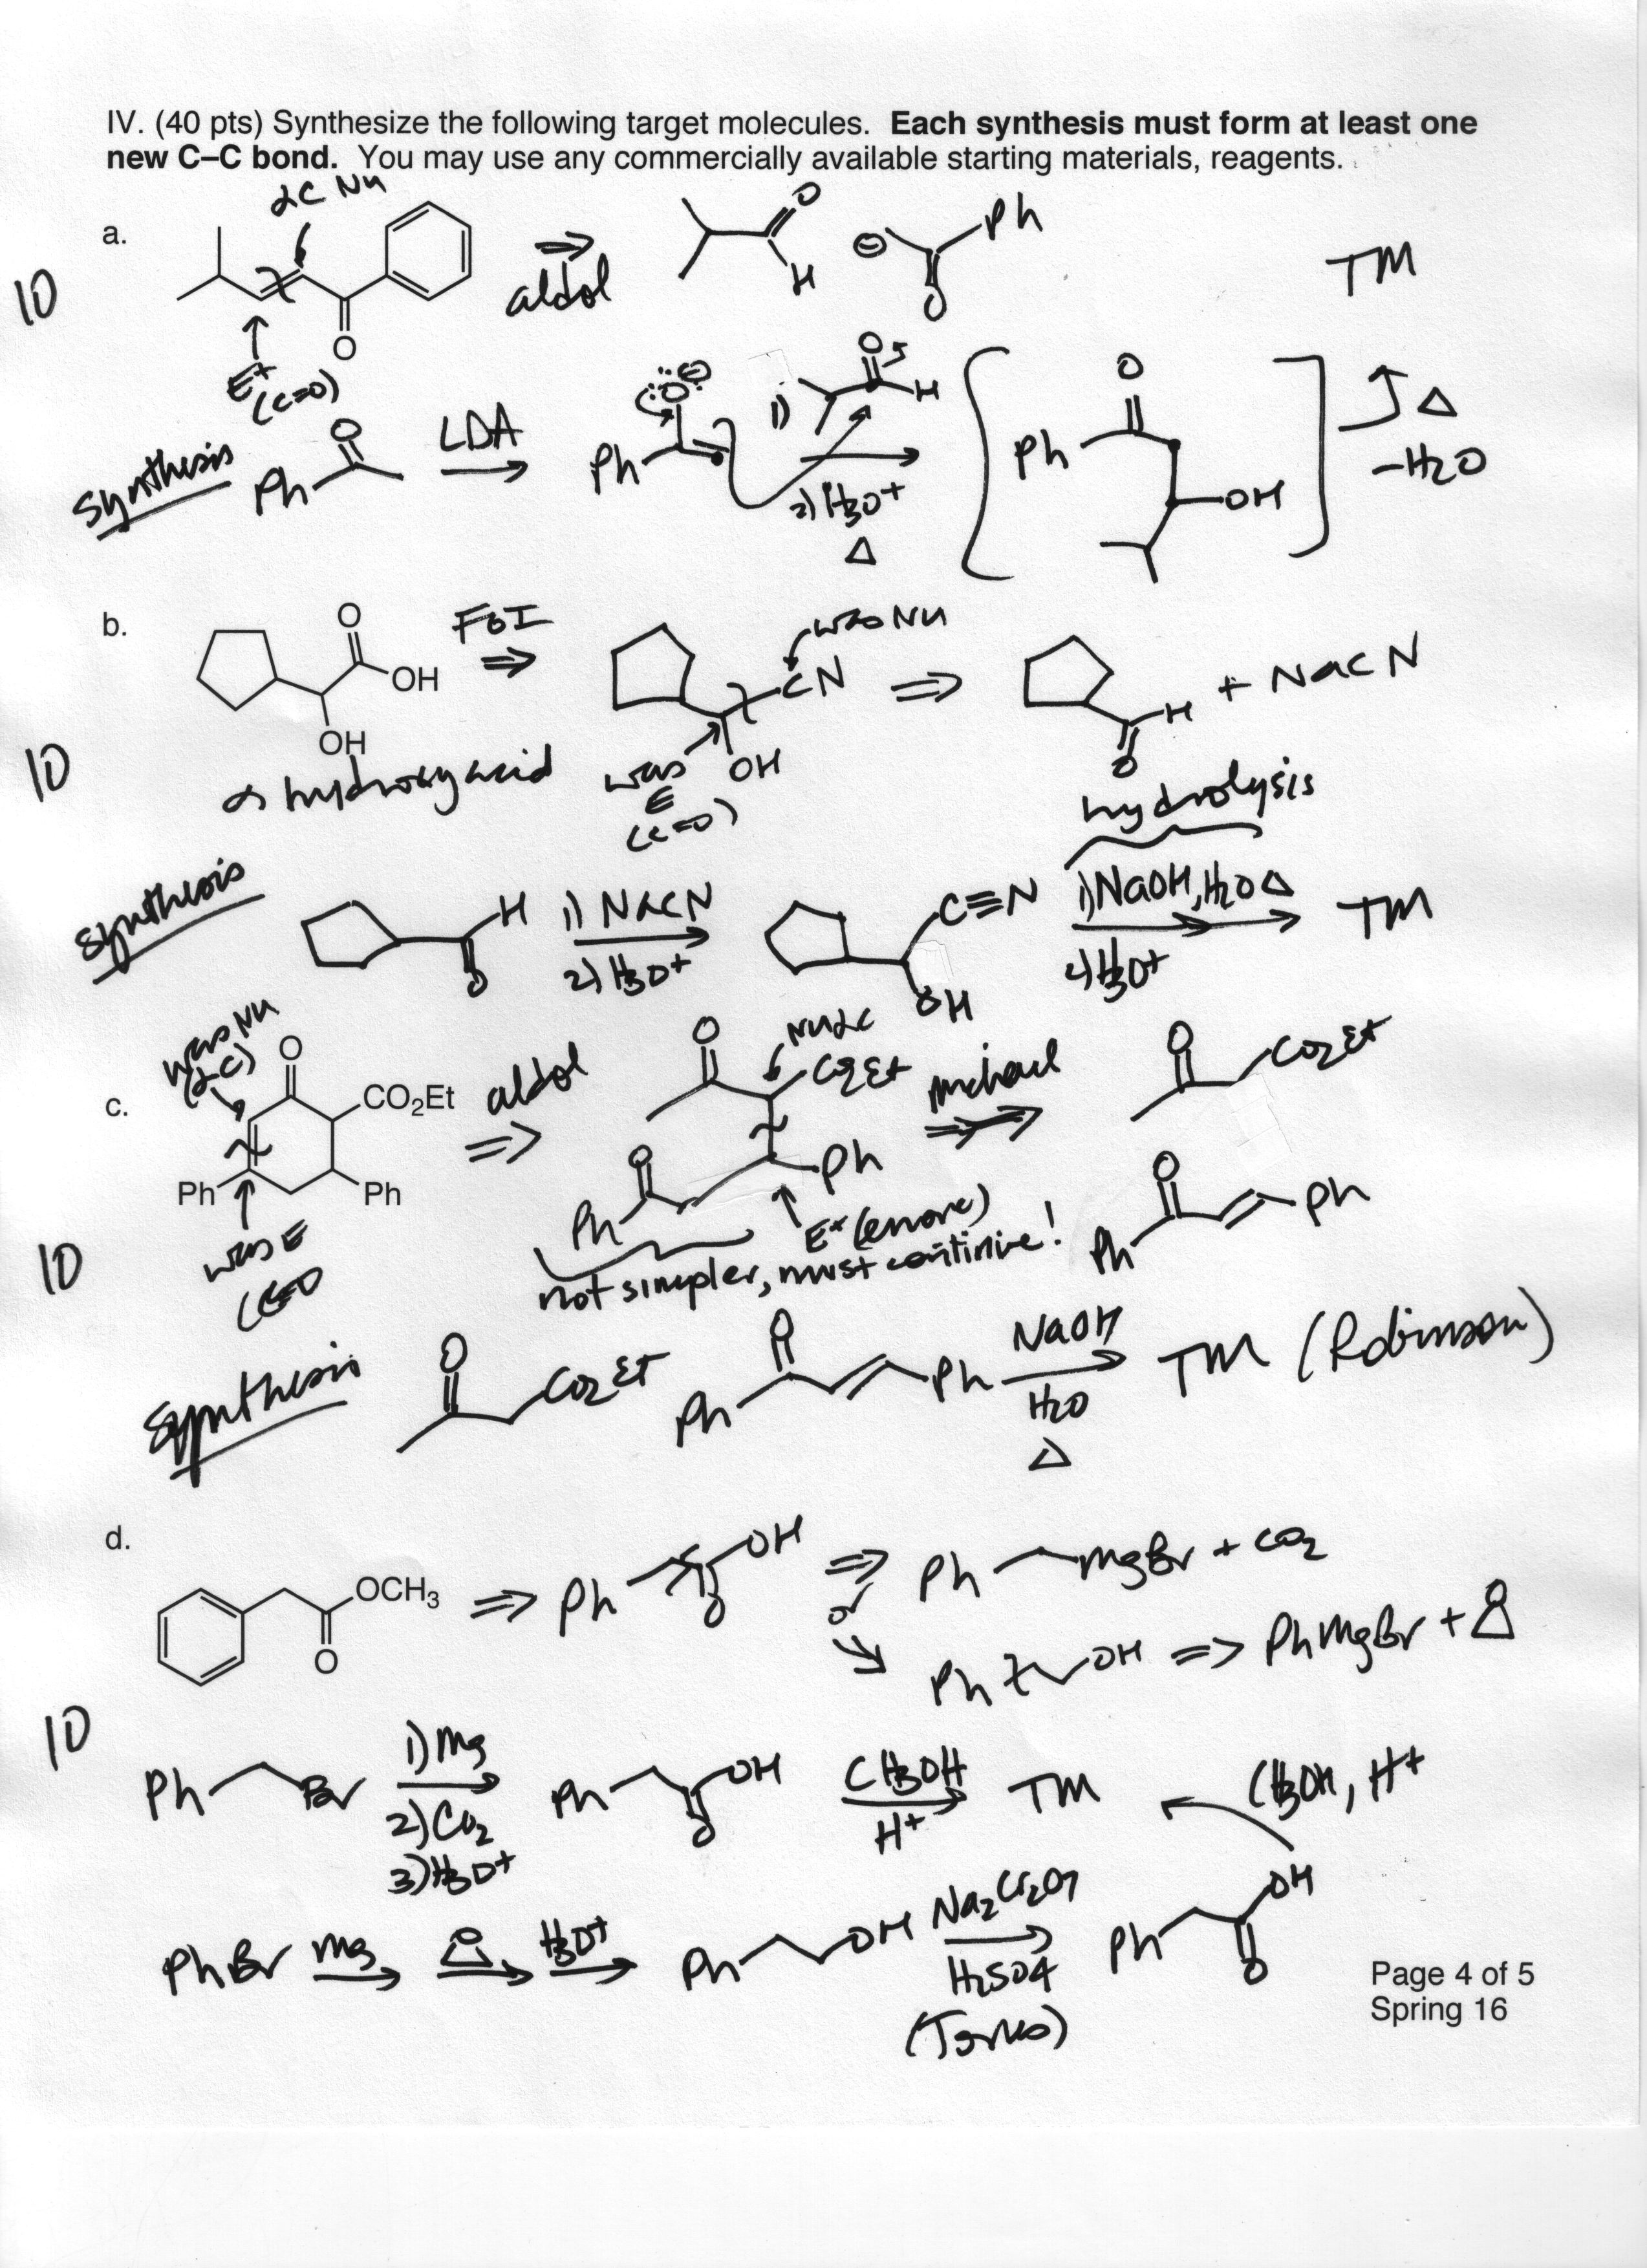 IV. (40 pts) Synthesize the following target molecules. Each synthesis must form at least one
new C–C bond. You may use any commercially available starting materials, reagents.
αC Nu
a.
O
Ph
⊖
H
O
aldol
TM
10
O
E+
(C=O)
Synthesis
O
Ph
LDA
:Ö:⊖
Ph
1)
O
H
2) H3O+
Δ
O
Ph
OH
Δ
-H2O
b.
O
OH
OH
FGI
was Nu
CN
OH
was
E
(C=O)
H
O
+ NaCN
10
α hydroxy acid
hydrolysis
Synthesis
H
O
1) NaCN
2) H3O+
C≡N
OH
1) NaOH, H2O Δ
2) H3O+
TM
was Nu
(αC)
c.
O
CO2Et
Ph
Ph
aldol
O
Nu αC
CO2Et
O
Ph
Ph
michael
O
CO2Et
O
Ph
Ph
10
was E
(C=O
E+ (enone)
not simpler, must continue!
Synthesis
O
CO2Et
O
Ph
Ph
NaOH
H2O
Δ
TM (Robinson)
d.
OCH3
O
Ph
OH
O
Ph
MgBr + CO2
or
Ph
OH
PhMgBr +
O
10
Ph
Br
1) Mg
2) CO2
3) H3O+
Ph
OH
O
CH3OH
H+
TM
CH3OH, H+
PhBr
Mg
O
H3O+
Ph
OH
Na2Cr2O7
H2SO4
(Jones)
Ph
OH
O
Page 4 of 5
Spring 16